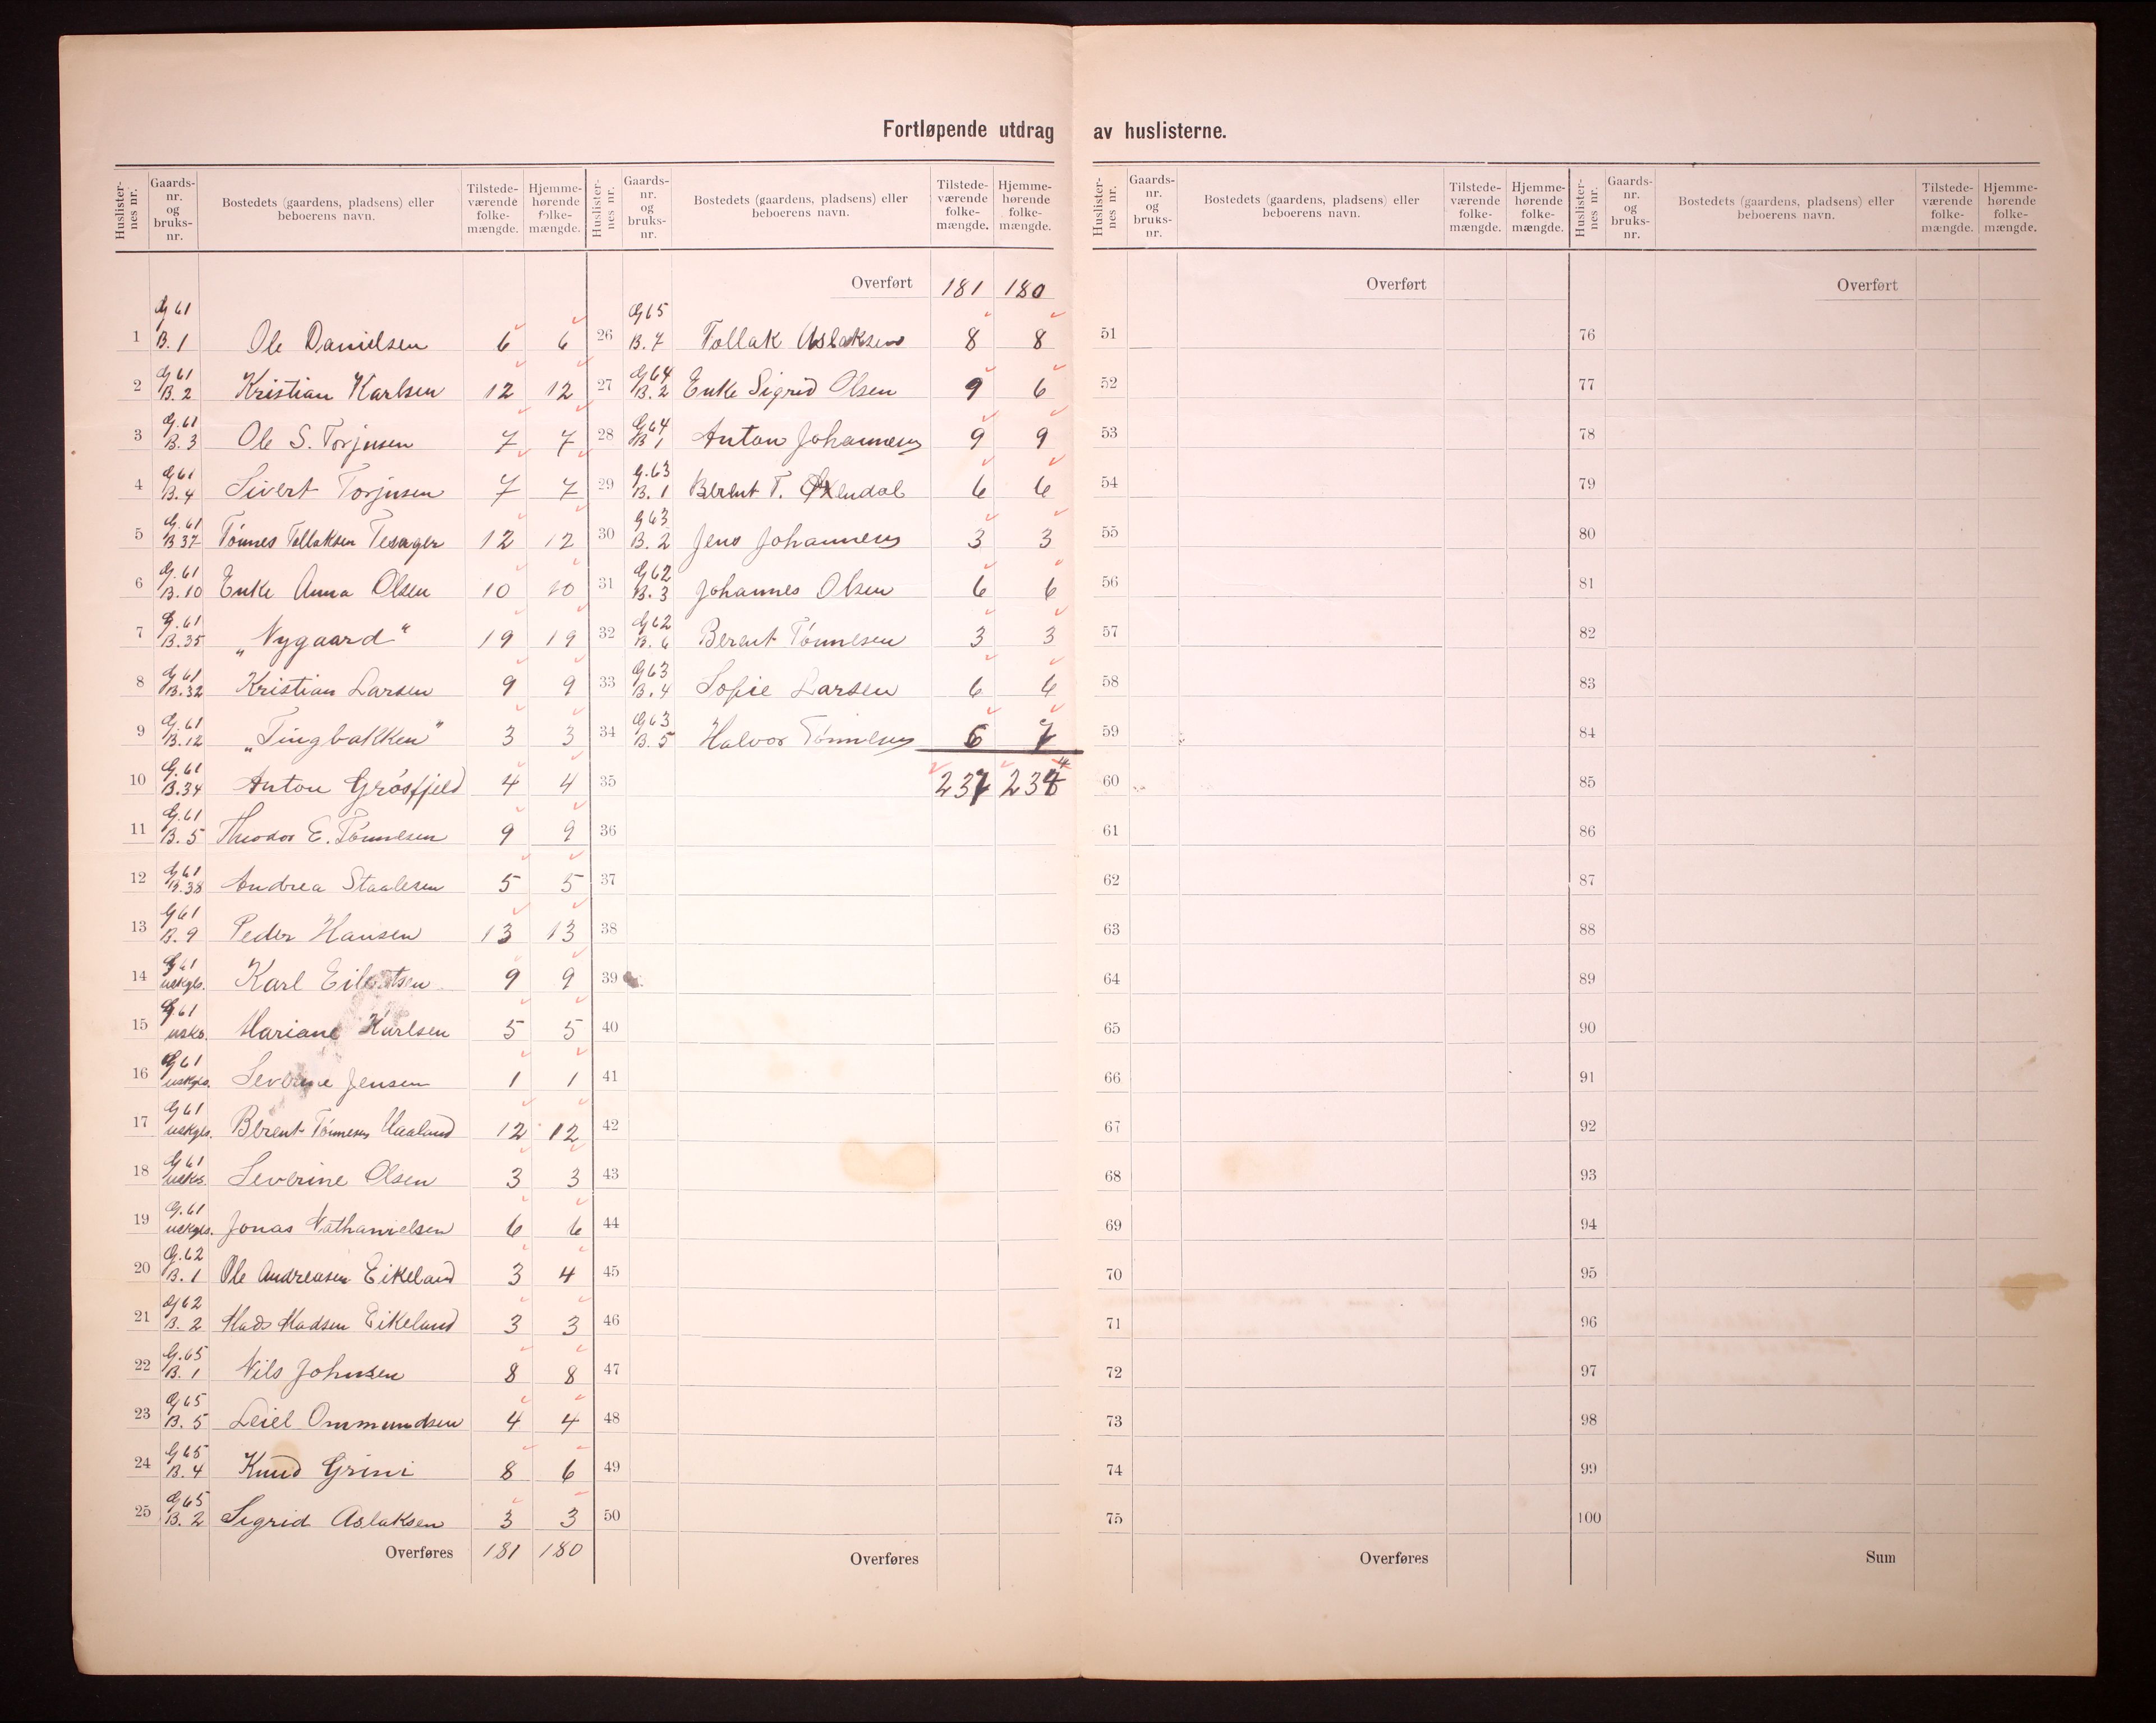 Fortløpende utdrag av huslisterne.
Huslister-nes nr. Gaards-nr. og bruks-nr. Bostedets (gaardens, pladsens) eller beboerens navn. Tilstede-værende folke-mængde. Hjemme-hørende folke-mængde.
1 G 61 B. 1 Ole Danielsen 6 6
2 G 61 B. 2 Kristian Karlsen 12 12
3 G. 61 B. 3 Ole S. Torjusen 7 7
4 G 61 B. 4 Sivert Torjusen 7 7
5 G. 61 B 37 Tønnes Tollaksen Tesager 12 12
6 G. 61 B. 10 Enke Anna Olsen 10 10
7 G. 61 B. 35 „Nygaard“ 19 19
8 G 61 B. 32 Kristian Larsen 9 9
9 G. 61 B. 12 „Tingbakken“ 3 3
10 G. 61 B. 34 Anton Grøsfjeld 4 4
11 G. 61 B. 5 Theodor E. Tønnesen 9 9
12 G 61 B. 38 Andrea Staalesen 5 5
13 G 61 B. 9 Peder Hansen 13 13
14 G 61 uskyls. Karl Eilertsen 9 9
15 G 61 usks. Mariane Karlsen 5 5
16 G 61 uskyls. Severine Jensen 1 1
17 G 61 uskyls. Berent Tønnesen Haaland 12 12
18 G 61 usks. Severine Olsen 3 3
19 G. 61 uskyls. Jonas Nathanielsen 6 6
20 G. 62 B. 1 Ole Andreasen Eikeland 3 4
21 G 62 B. 2 Mads Madsen Eikeland 3 3
22 G. 65 B. 1 Nils Johnsen 8 8
23 G 65 B. 5 Leiel Ommundsen 4 4
24 G 65 B. 4 Knud Grini 8 6
25 G 65 B. 2 Sigrid Aslaksen 3 3
Overføres 181 180
Huslister-nes nr. Gaards-nr. og bruks-nr. Bostedets (gaardens, pladsens) eller beboerens navn. Tilstede-værende folke-mængde. Hjemme-hørende folke-mængde.
Overført 181 180
26 G 65 B. 7 Tollak Aslaksen 8 8
27 G 64 B. 2 Enke Sigrid Olsen 9 6
28 G 64 B 1 Anton Johannesen 9 9
29 G. 63 B. 1 Berent T. Øxendal 6 6
30 G 63 B. 2 Jens Johannesen 3 3
31 G 62 B. 3 Johannes Olsen 6 6
32 G 62 B. 6 Berent Tønnesen 3 3
33 G 63 B. 4 Sofie Larsen 6 6
34 G 63 B. 5 Halvor Tønnesen 6 7
35 237 234
36
37
38
39
40
41
42
43
44
45
46
47
48
49
50
Overføres
Huslister-nes nr. Gaards-nr. og bruks-nr. Bostedets (gaardens, pladsens) eller beboerens navn. Tilstede-værende folke-mængde. Hjemme-hørende folke-mængde.
Overført
51
52
53
54
55
56
57
58
59
60
61
62
63
64
65
66
67
68
69
70
71
72
73
74
75
Overføres
Huslister-nes nr. Gaards-nr. og bruks-nr. Bostedets (gaardens, pladsens) eller beboerens navn. Tilstede-værende folke-mængde. Hjemme-hørende folke-mængde.
Overført
76
77
78
79
80
81
82
83
84
85
86
87
88
89
90
91
92
93
94
95
96
97
98
99
100
Sum